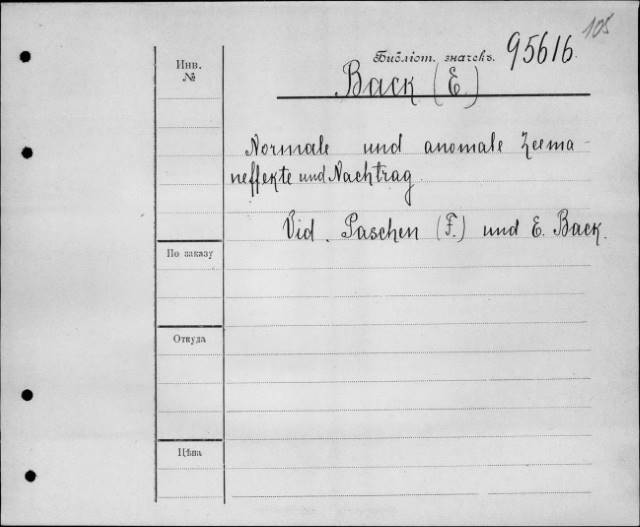 105
Библіот. значекъ. 95616.
Инв.
№
Back (E.)
Normale und anomale Zeema-
neffekte und Nachtrag.
Vid. Paschen (F.) und E. Back.
По заказу
Откуда
Цѣна